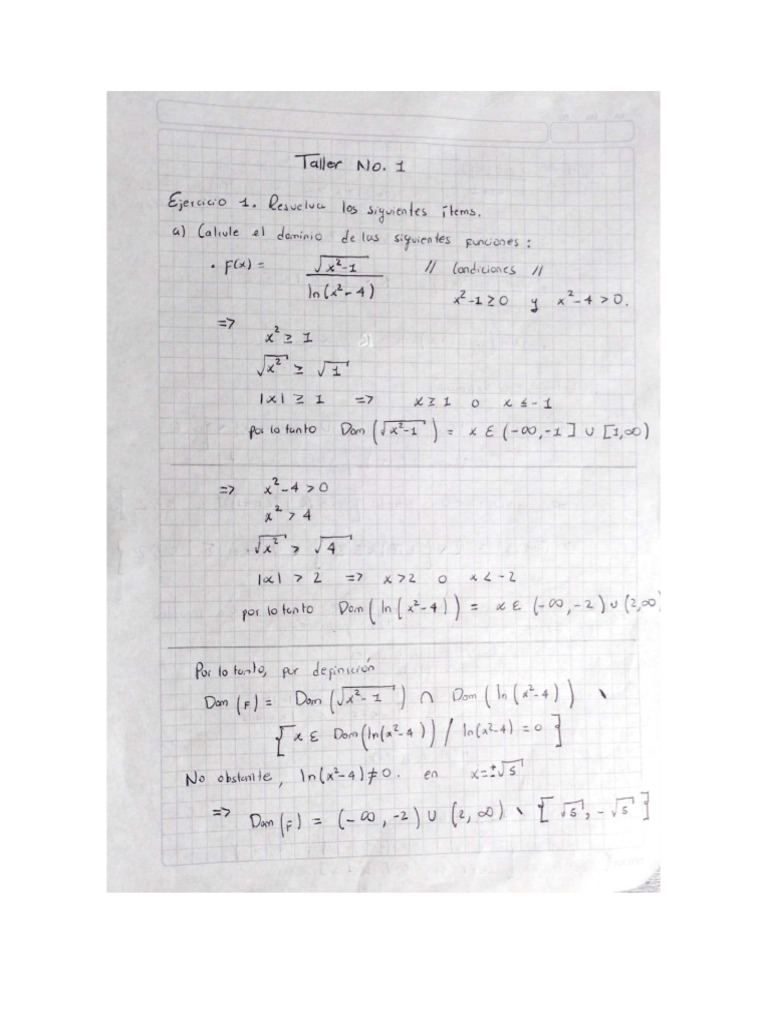 Taller No. 1
Ejercicio 1. Resuelva los siguientes ítems.
a) Calcule el dominio de las siguientes funciones:
• F(x) = √(x²-1) / ln(x²-4) // Condiciones //
x²-1 ≥ 0 y x²-4 > 0.
=>
x² ≥ 1
√x² ≥ √1
|x| ≥ 1 => x ≥ 1 o x ≤ -1
por lo tanto Dom(√(x²-1)) = x ε (-∞, -1] ∪ [1, ∞)
=> x²-4 > 0
x² > 4
√x² > √4
|x| > 2 => x > 2 o x < -2
por lo tanto Dom(ln(x²-4)) = x ε (-∞, -2) ∪ (2, ∞)
Por lo tanto, por definición
Dom(F) = Dom(√(x²-1)) ∩ Dom(ln(x²-4)) \
{x ε Dom(ln(x²-4)) / ln(x²-4) = 0}
No obstante, ln(x²-4) ≠ 0. en x = ±√5
=> Dom(F) = (-∞, -2) ∪ (2, ∞) \ {√5, -√5}